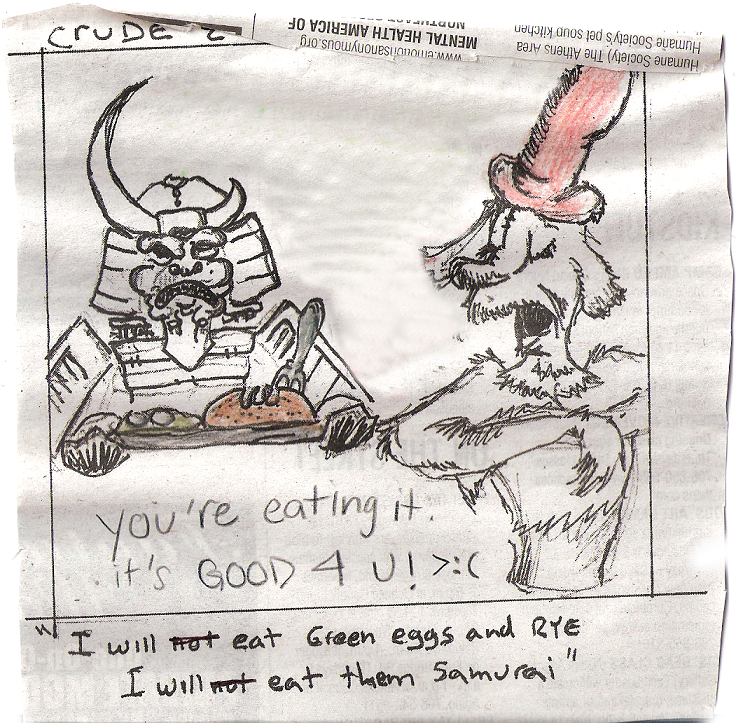 CRUDE 2
www.emotionsanonymous.org
MENTAL HEALTH AMERICA OF
Humane Society) The Athens Area
Humane Society's pet soup kitchen
you're eating it.
it's GOOD 4 U! >:(
"I will not eat Green eggs and RYE
I will not eat them Samurai"